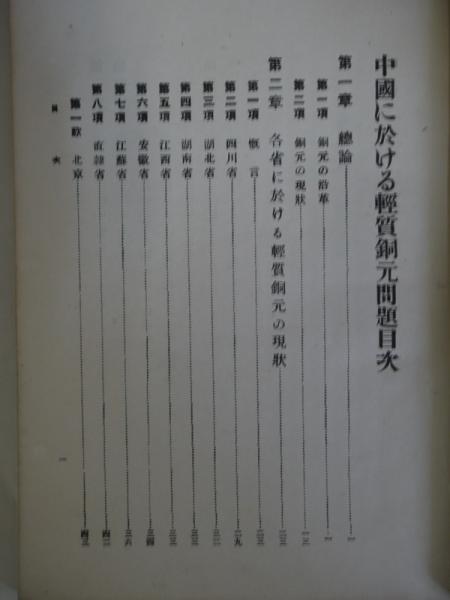 中國に於ける輕質銅元問題目次
第一章 總論 一
第一項 銅元の沿革 一
第二項 銅元の現狀 一三
第二章 各省に於ける輕質銅元の現狀 二三
第一項 概言 二三
第二項 四川省 二九
第三項 湖北省 三二
第四項 湖南省 三三
第五項 江西省 三三
第六項 安徽省 三四
第七項 江蘇省 三六
第八項 直隷省 四二
第一款 北京 四三
目次
一